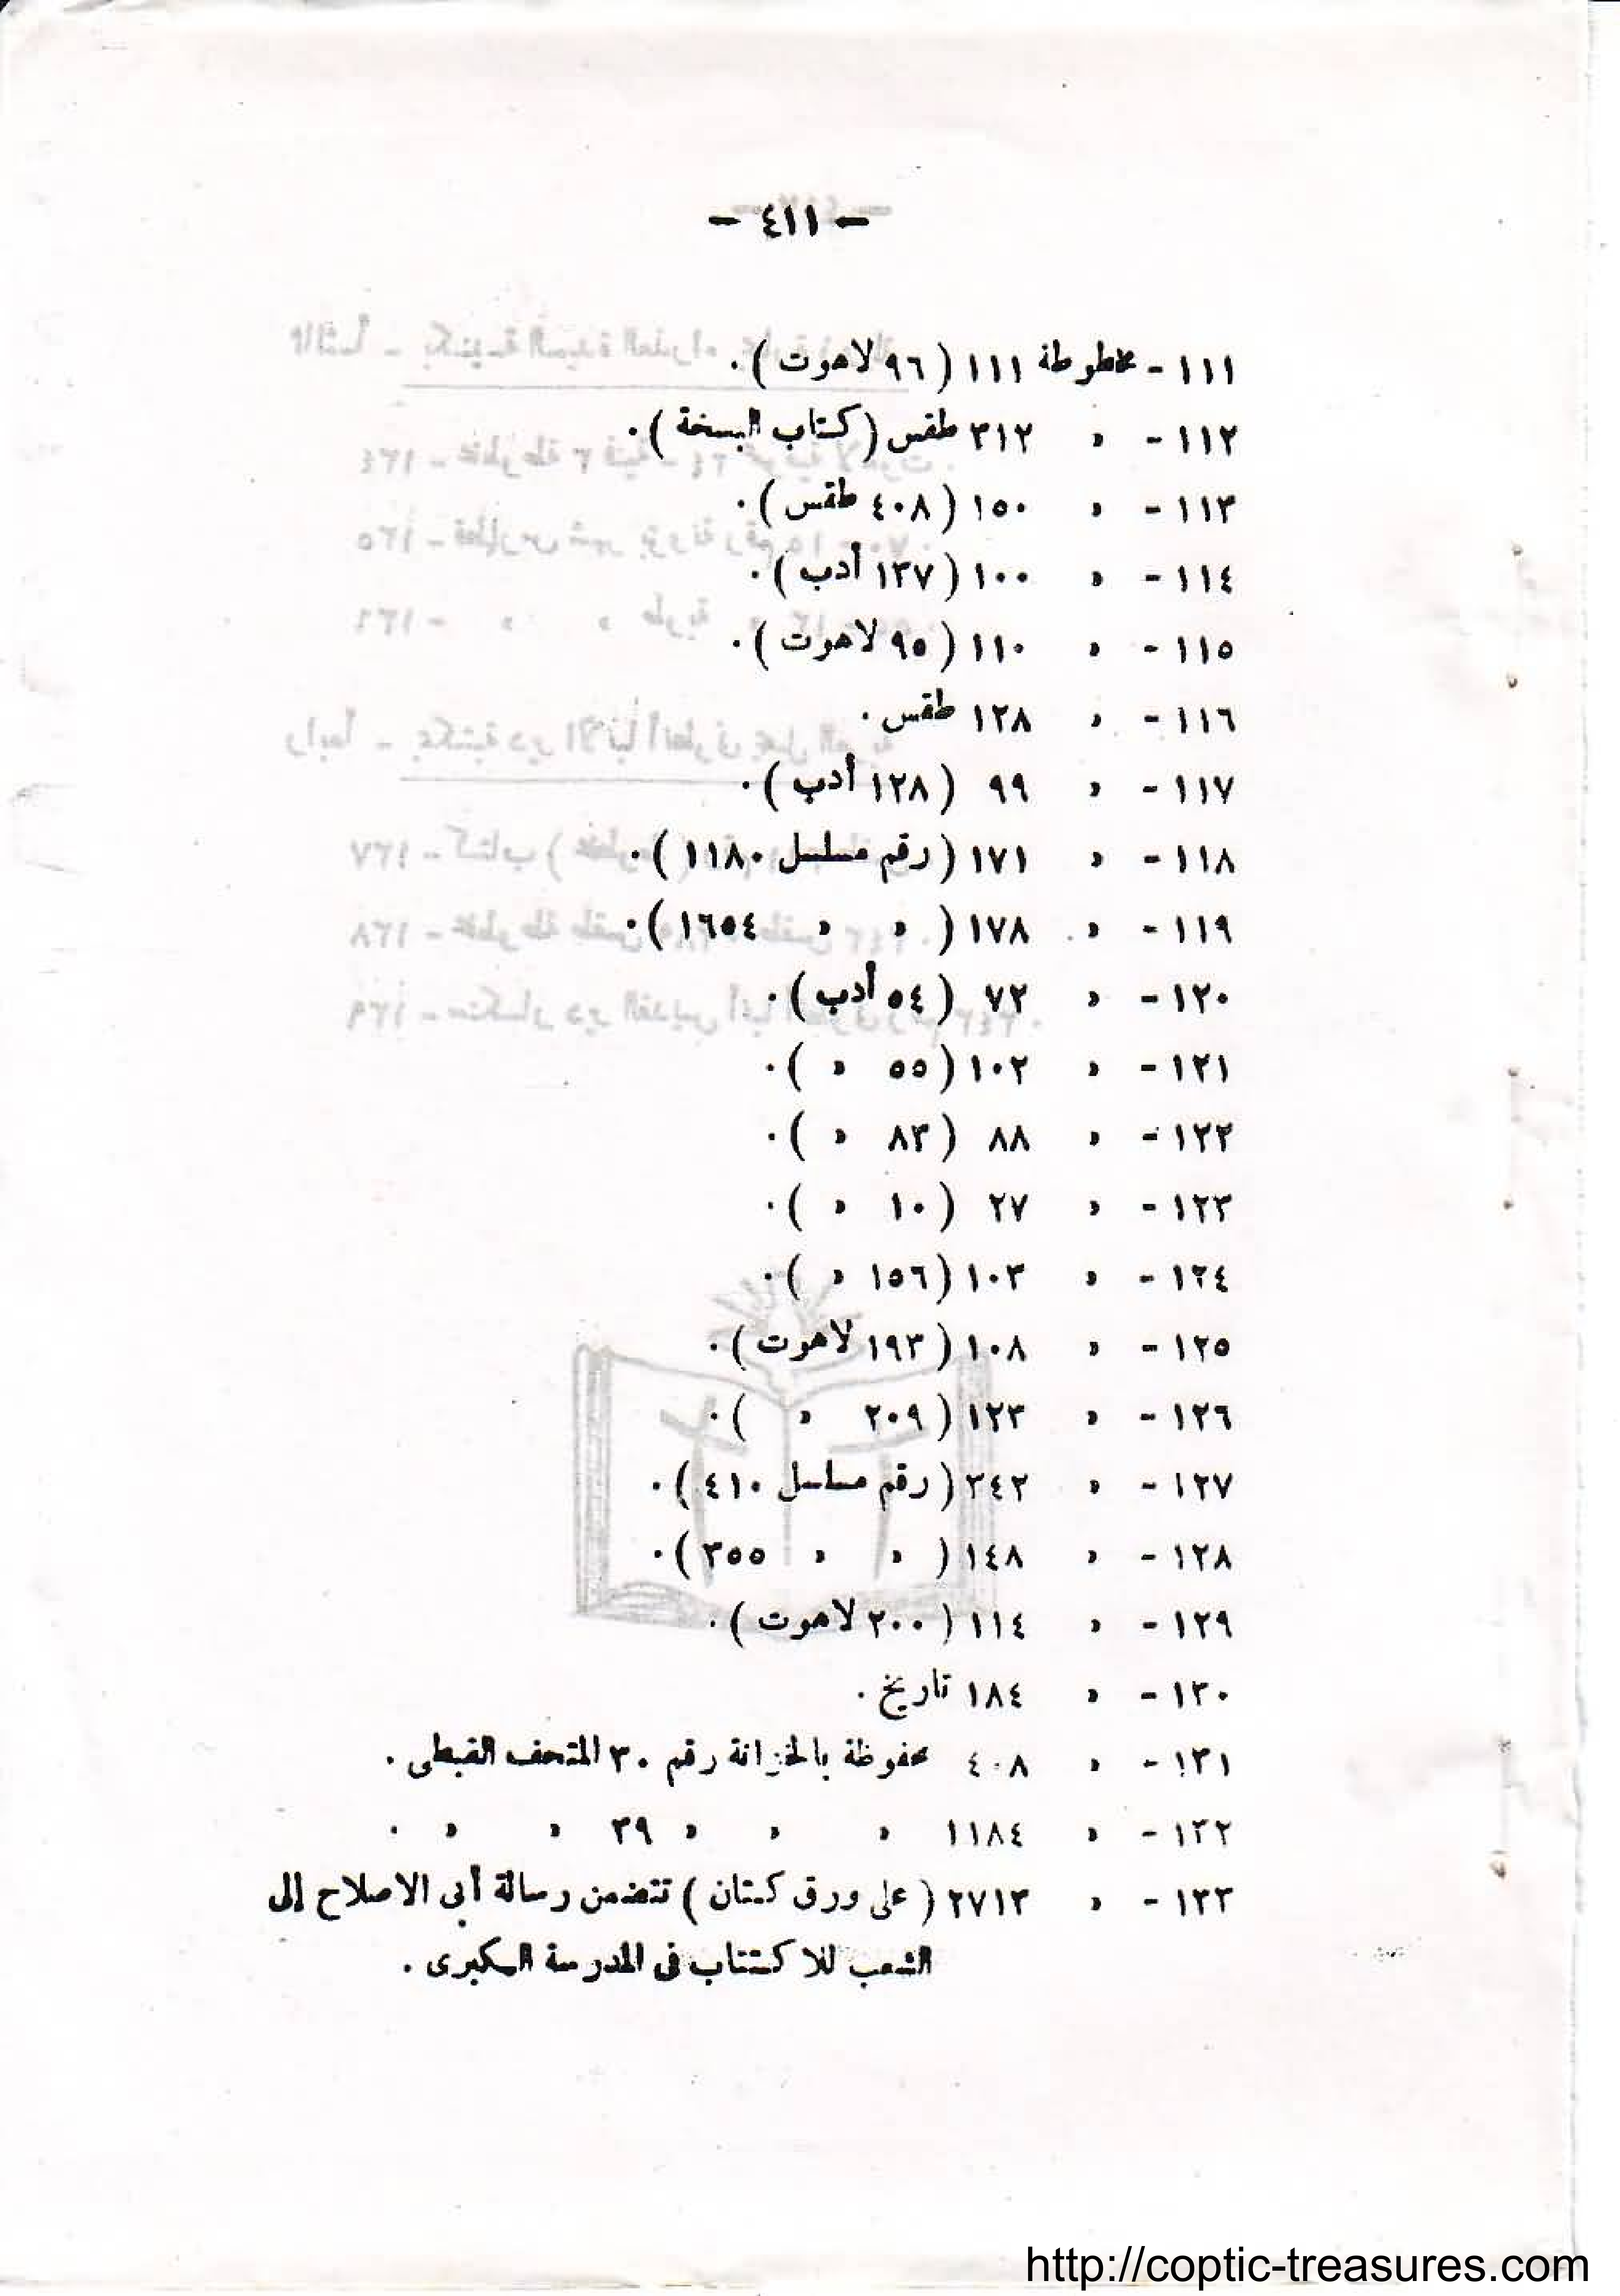 — ٤١١ —
١١١ - مخطوطة ١١١ ( ٩٦ لاهوت ) .
١١٢ - » ٣١٢ طقس ( كتاب البسخة ) .
١١٣ - » ١٥٠ ( ٤٠٨ طقس ) .
١١٤ - » ١٠٠ ( ١٣٧ أدب ) .
١١٥ - » ١١٠ ( ٩٥ لاهوت ) .
١١٦ - » ١٢٨ طقس .
١١٧ - » ٩٩ ( ١٢٨ أدب ) .
١١٨ - » ١٧١ ( رقم مسلسل ١١٨٠ ) .
١١٩ - » ١٧٨ ( » » ١٦٥٤ ) .
١٢٠ - » ٧٢ ( ٥٤ أدب ) .
١٢١ - » ١٠٢ ( ٥٥ » ) .
١٢٢ - » ٨٨ ( ٨٣ » ) .
١٢٣ - » ٢٧ ( ١٠ » ) .
١٢٤ - » ١٠٣ ( ١٥٦ » ) .
١٢٥ - » ١٠٨ ( ١٩٣ لاهوت ) .
١٢٦ - » ١٢٣ ( ٢٠٩ » ) .
١٢٧ - » ٣٤٢ ( رقم مسلسل ٤١٠ ) .
١٢٨ - » ١٤٨ ( » » ٣٥٥ ) .
١٢٩ - » ١١٤ ( ٢٠٠ لاهوت ) .
١٣٠ - » ١٨٤ تاريخ .
١٣١ - » ٤٠٨ محفوظة بالخزانة رقم ٣٠ المتحف القبطى .
١٣٢ - » ١١٨٤ » » » ٣٩ » » .
١٣٣ - » ٢٧١٣ ( على ورق كتان ) تتضمن رسالة أبى الاصلاح إلى
الشعب للاكتتاب فى المدرسة الكبرى .
http://coptic-treasures.com